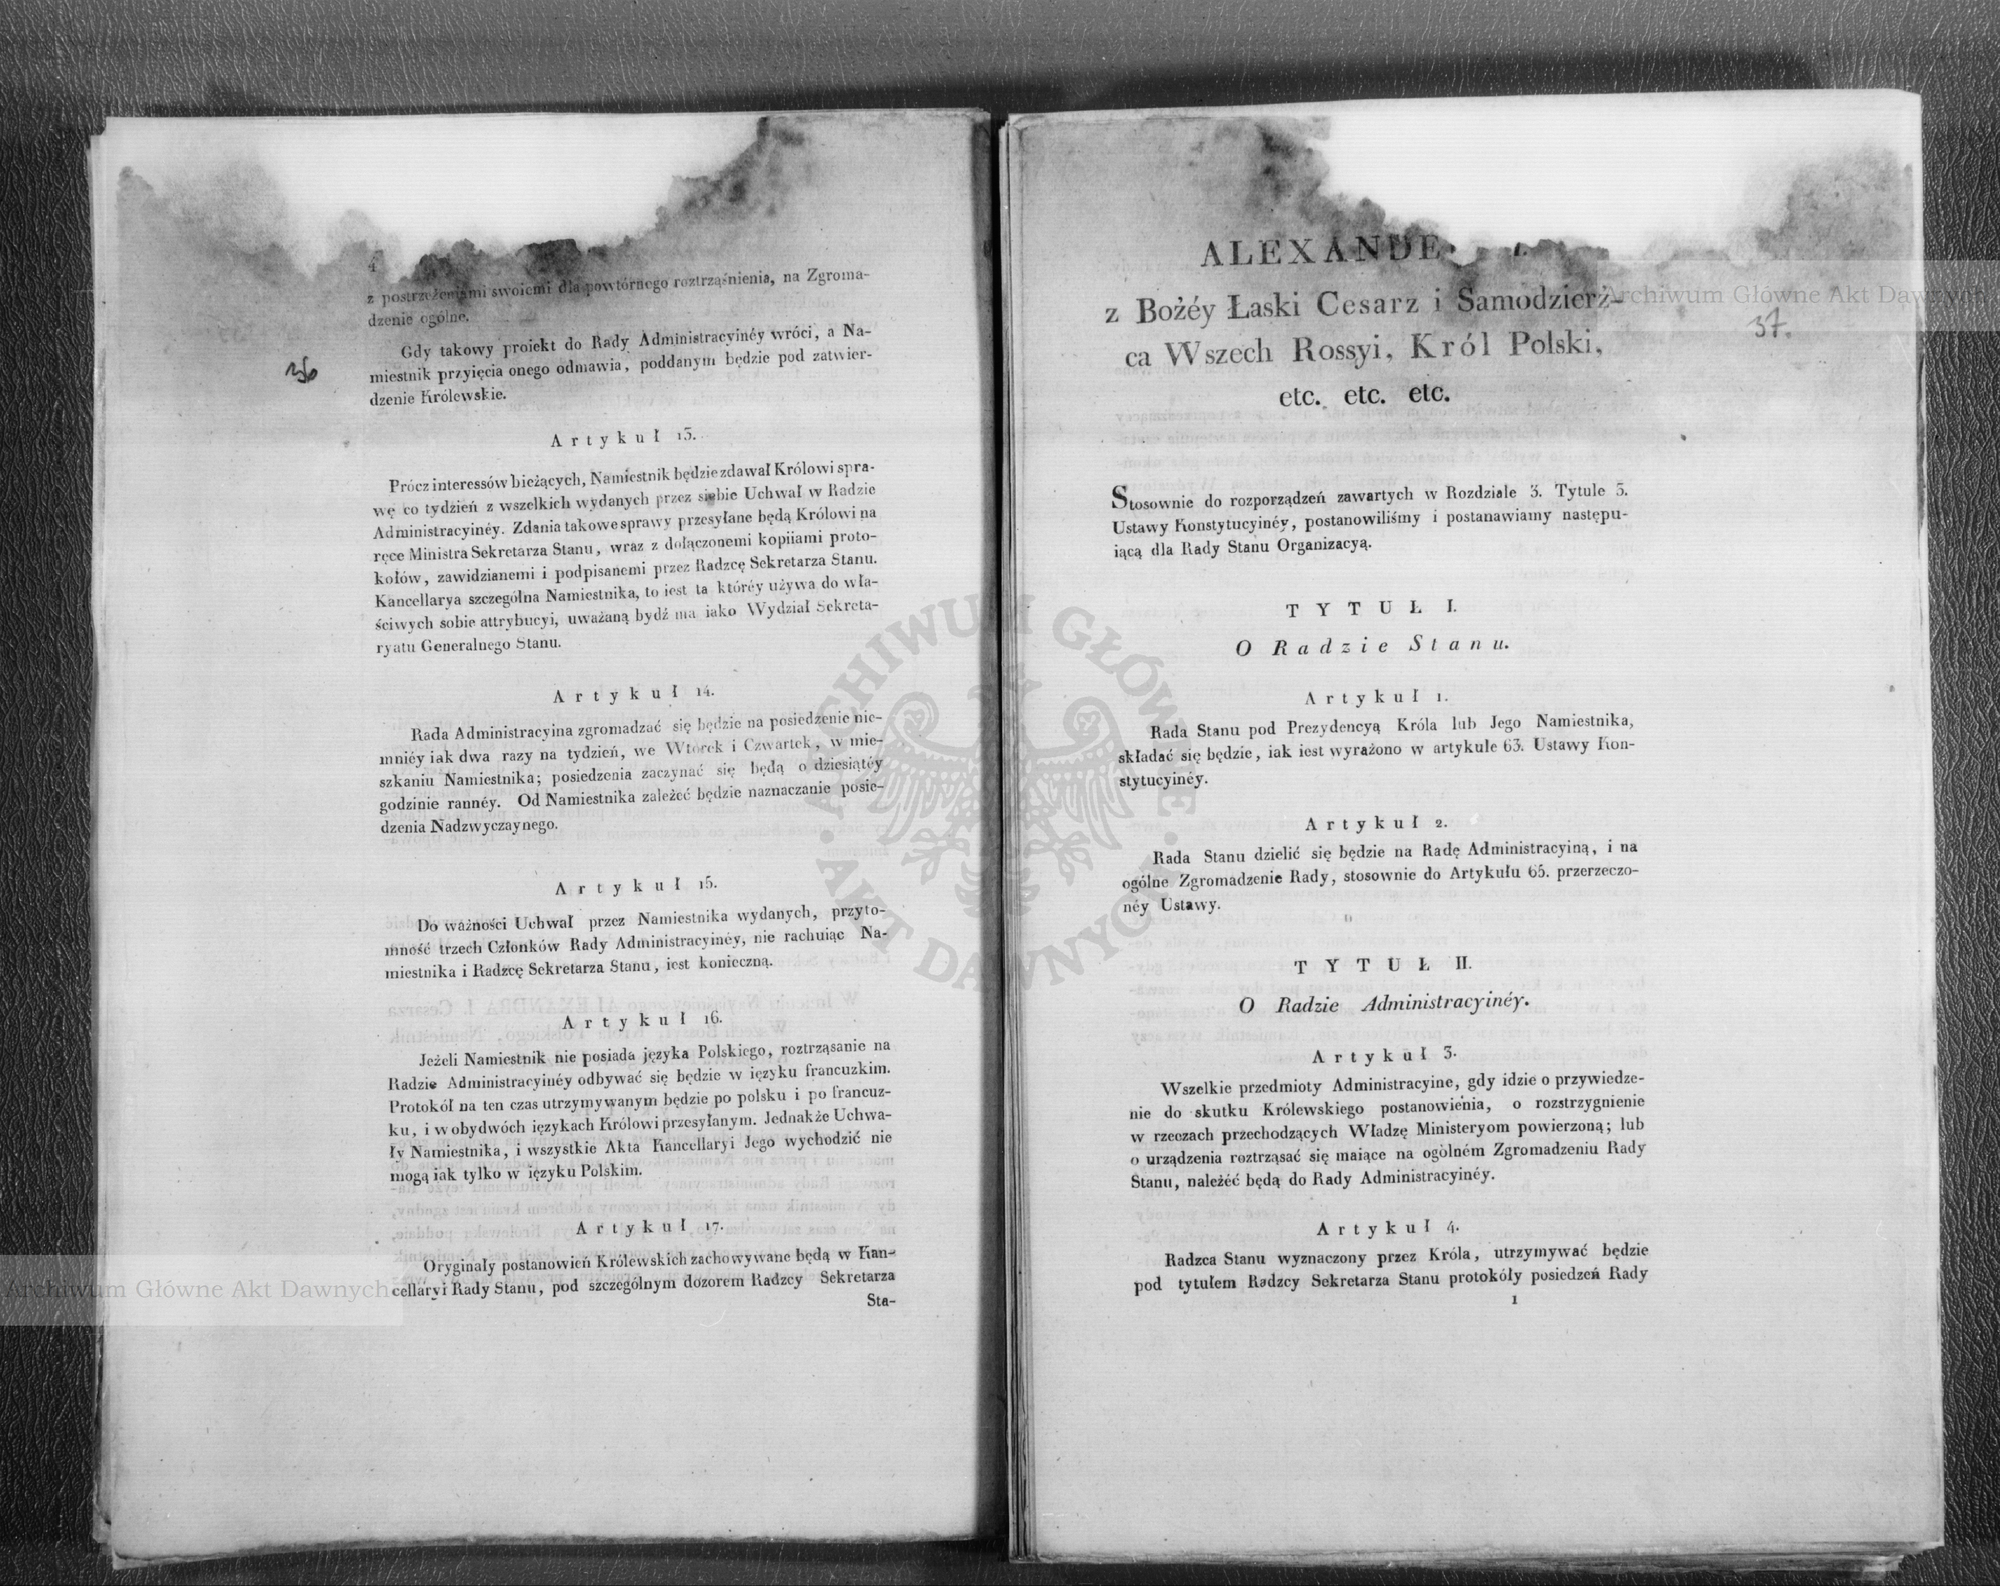 4
z postrzeżeniami swoiemi dla powtórnego roztrząśnienia, na Zgroma-
dzenie ogólne.
Gdy takowy proiekt do Rady Administracyinéy wróci, a Na-
miestnik przyięcia onego odmawia, poddanym będzie pod zatwier-
dzenie Królewskie.
Artykuł 13.
Prócz interessów bieżących, Namiestnik będzie zdawał Królowi spra-
wę co tydzień z wszelkich wydanych przez siebie Uchwał w Radzie
Administracyinéy. Zdania takowe sprawy przesyłane będą Królowi na
ręce Ministra Sekretarza Stanu, wraz z dołączonemi kopiiami proto-
kołów, zawidzianemi i podpisanemi przez Radzcę Sekretarza Stanu.
Kancellarya szczególna Namiestnika, to iest ta któréy używa do wła-
ściwych sobie attrybucyi, uważaną bydź ma iako Wydział Sekreta-
ryatu Generalnego Stanu.
Artykuł 14.
Rada Administracyina zgromadzać się będzie na posiedzenie nie-
mniéy iak dwa razy na tydzień, we Wtorek i Czwartek, w mie-
szkaniu Namiestnika; posiedzenia zaczynać się będą o dziesiątéy
godzinie rannéy. Od Namiestnika zależeć będzie naznaczanie posie-
dzenia Nadzwyczaynego.
Artykuł 15.
Do ważności Uchwał przez Namiestnika wydanych, przyto-
mność trzech Członków Rady Administracyinéy, nie rachuiąc Na-
miestnika i Radzcę Sekretarza Stanu, iest konieczną.
Artykuł 16.
Jeżeli Namiestnik nie posiada języka Polskiego, roztrząsanie na
Radzie Administracyinéy odbywać się będzie w ięzyku francuzkim.
Protokół na ten czas utrzymywanym będzie po polsku i po francuz-
ku, i w obydwóch ięzykach Królowi przesyłanym. Jednakże Uchwa-
ły Namiestnika, i wszystkie Akta Kancellaryi Jego wychodzić nie
mogą iak tylko w ięzyku Polskim.
Artykuł 17.
Oryginały postanowień Królewskich zachowywane będą w Kan-
cellaryi Rady Stanu, pod szczególnym dozorem Radzcy Sekretarza
Sta-
ALEXANDE
z Bożéy Łaski Cesarz i Samodzierż-
37.
ca Wszech Rossyi, Król Polski,
etc. etc. etc.
Stosownie do rozporządzeń zawartych w Rozdziale 3. Tytule 3.
Ustawy Konstytucyinéy, postanowiliśmy i postanawiamy następu-
iącą dla Rady Stanu Organizacyą.
TYTUŁ I.
O Radzie Stanu.
Artykuł 1.
Rada Stanu pod Prezydencyą Króla lub Jego Namiestnika,
składać się będzie, iak iest wyrażono w artykule 63. Ustawy Kon-
stytucyinéy.
Artykuł 2.
Rada Stanu dzielić się będzie na Radę Administracyiną, i na
ogólne Zgromadzenie Rady, stosownie do Artykułu 65. przerzeczo-
néy Ustawy.
TYTUŁ II.
O Radzie Administracyinéy.
Artykuł 3.
Wszelkie przedmioty Administracyine, gdy idzie o przywiedze-
nie do skutku Królewskiego postanowienia, o rozstrzygnienie
w rzeczach przechodzących Władzę Ministeryom powierzoną; lub
o urządzenia roztrząsać się maiące na ogólném Zgromadzeniu Rady
Stanu, należéć będą do Rady Administracyinéy.
Artykuł 4.
Radzca Stanu wyznaczony przez Króla, utrzymywać będzie
pod tytułem Radzcy Sekretarza Stanu protokóły posiedzeń Rady
1
Archiwum Główne Akt Dawnych
Archiwum Główne Akt Dawnych
ARCHIWUM GŁÓWNE
AKT DAWNYCH